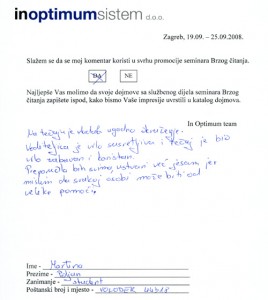 inoptimumsistem d.o.o.
Zagreb, 19.09. – 25.09.2008.
Slažem se da se moj komentar koristi u svrhu promocije seminara Brzog čitanja.
DA NE
Najljepše Vas molimo da svoje dojmove sa službenog dijela seminara Brzog
čitanja zapišete ispod, kako bismo Vaše impresije uvrstili u katalog dojmova.
In Optimum team
Na tečaju je vladalo ugodno okruženje.
Voditeljica je vrlo susretljiva i tečaj je bio
vrlo zabavan i koristan.
Preporučila bih svima, ustvari već jesam jer
mislim da svakoj osobi može biti od
velike pomoći.
Ime - Martina
Prezime -
Zanimanje - student
Poštanski broj i mjesto - VOLODER 44318